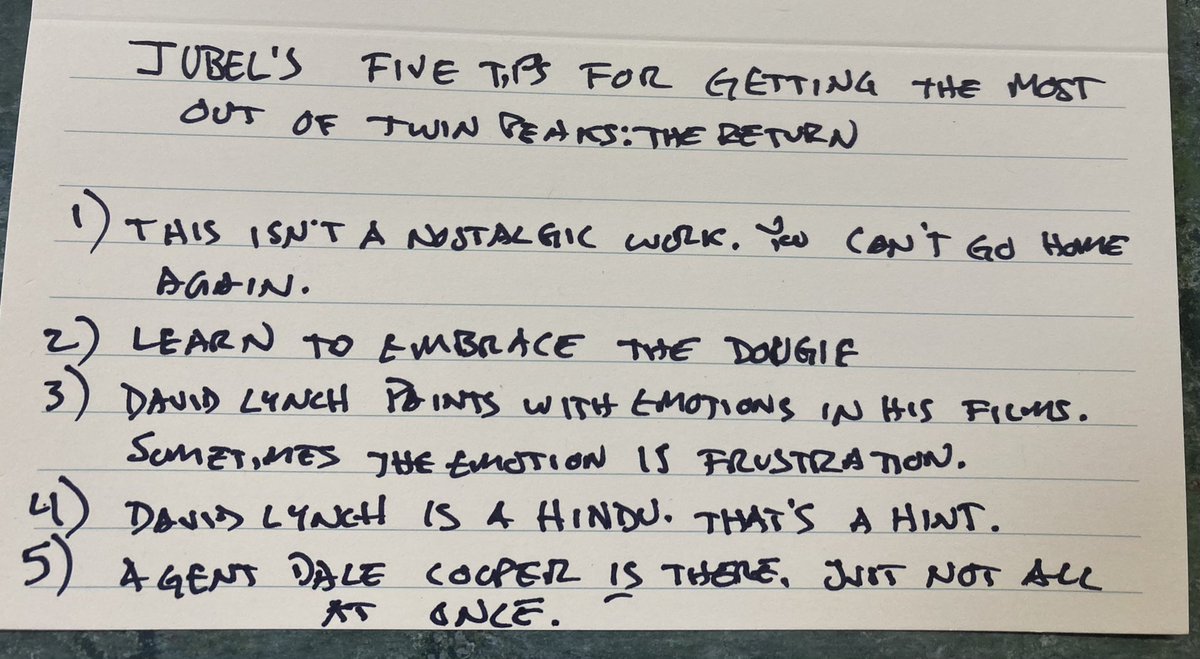 JUBEL'S FIVE TIPS FOR GETTING THE MOST
OUT OF TWIN PEAKS: THE RETURN
1) THIS ISN'T A NOSTALGIC WORK. YOU CAN'T GO HOME
AGAIN.
2) LEARN TO EMBRACE THE DOUGIE
3) DAVID LYNCH PAINTS WITH EMOTIONS IN HIS FILMS.
SOMETIMES THE EMOTION IS FRUSTRATION.
4) DAVID LYNCH IS A HINDU. THAT'S A HINT.
5) AGENT DALE COOPER IS THERE. JUST NOT ALL
AT ONCE.